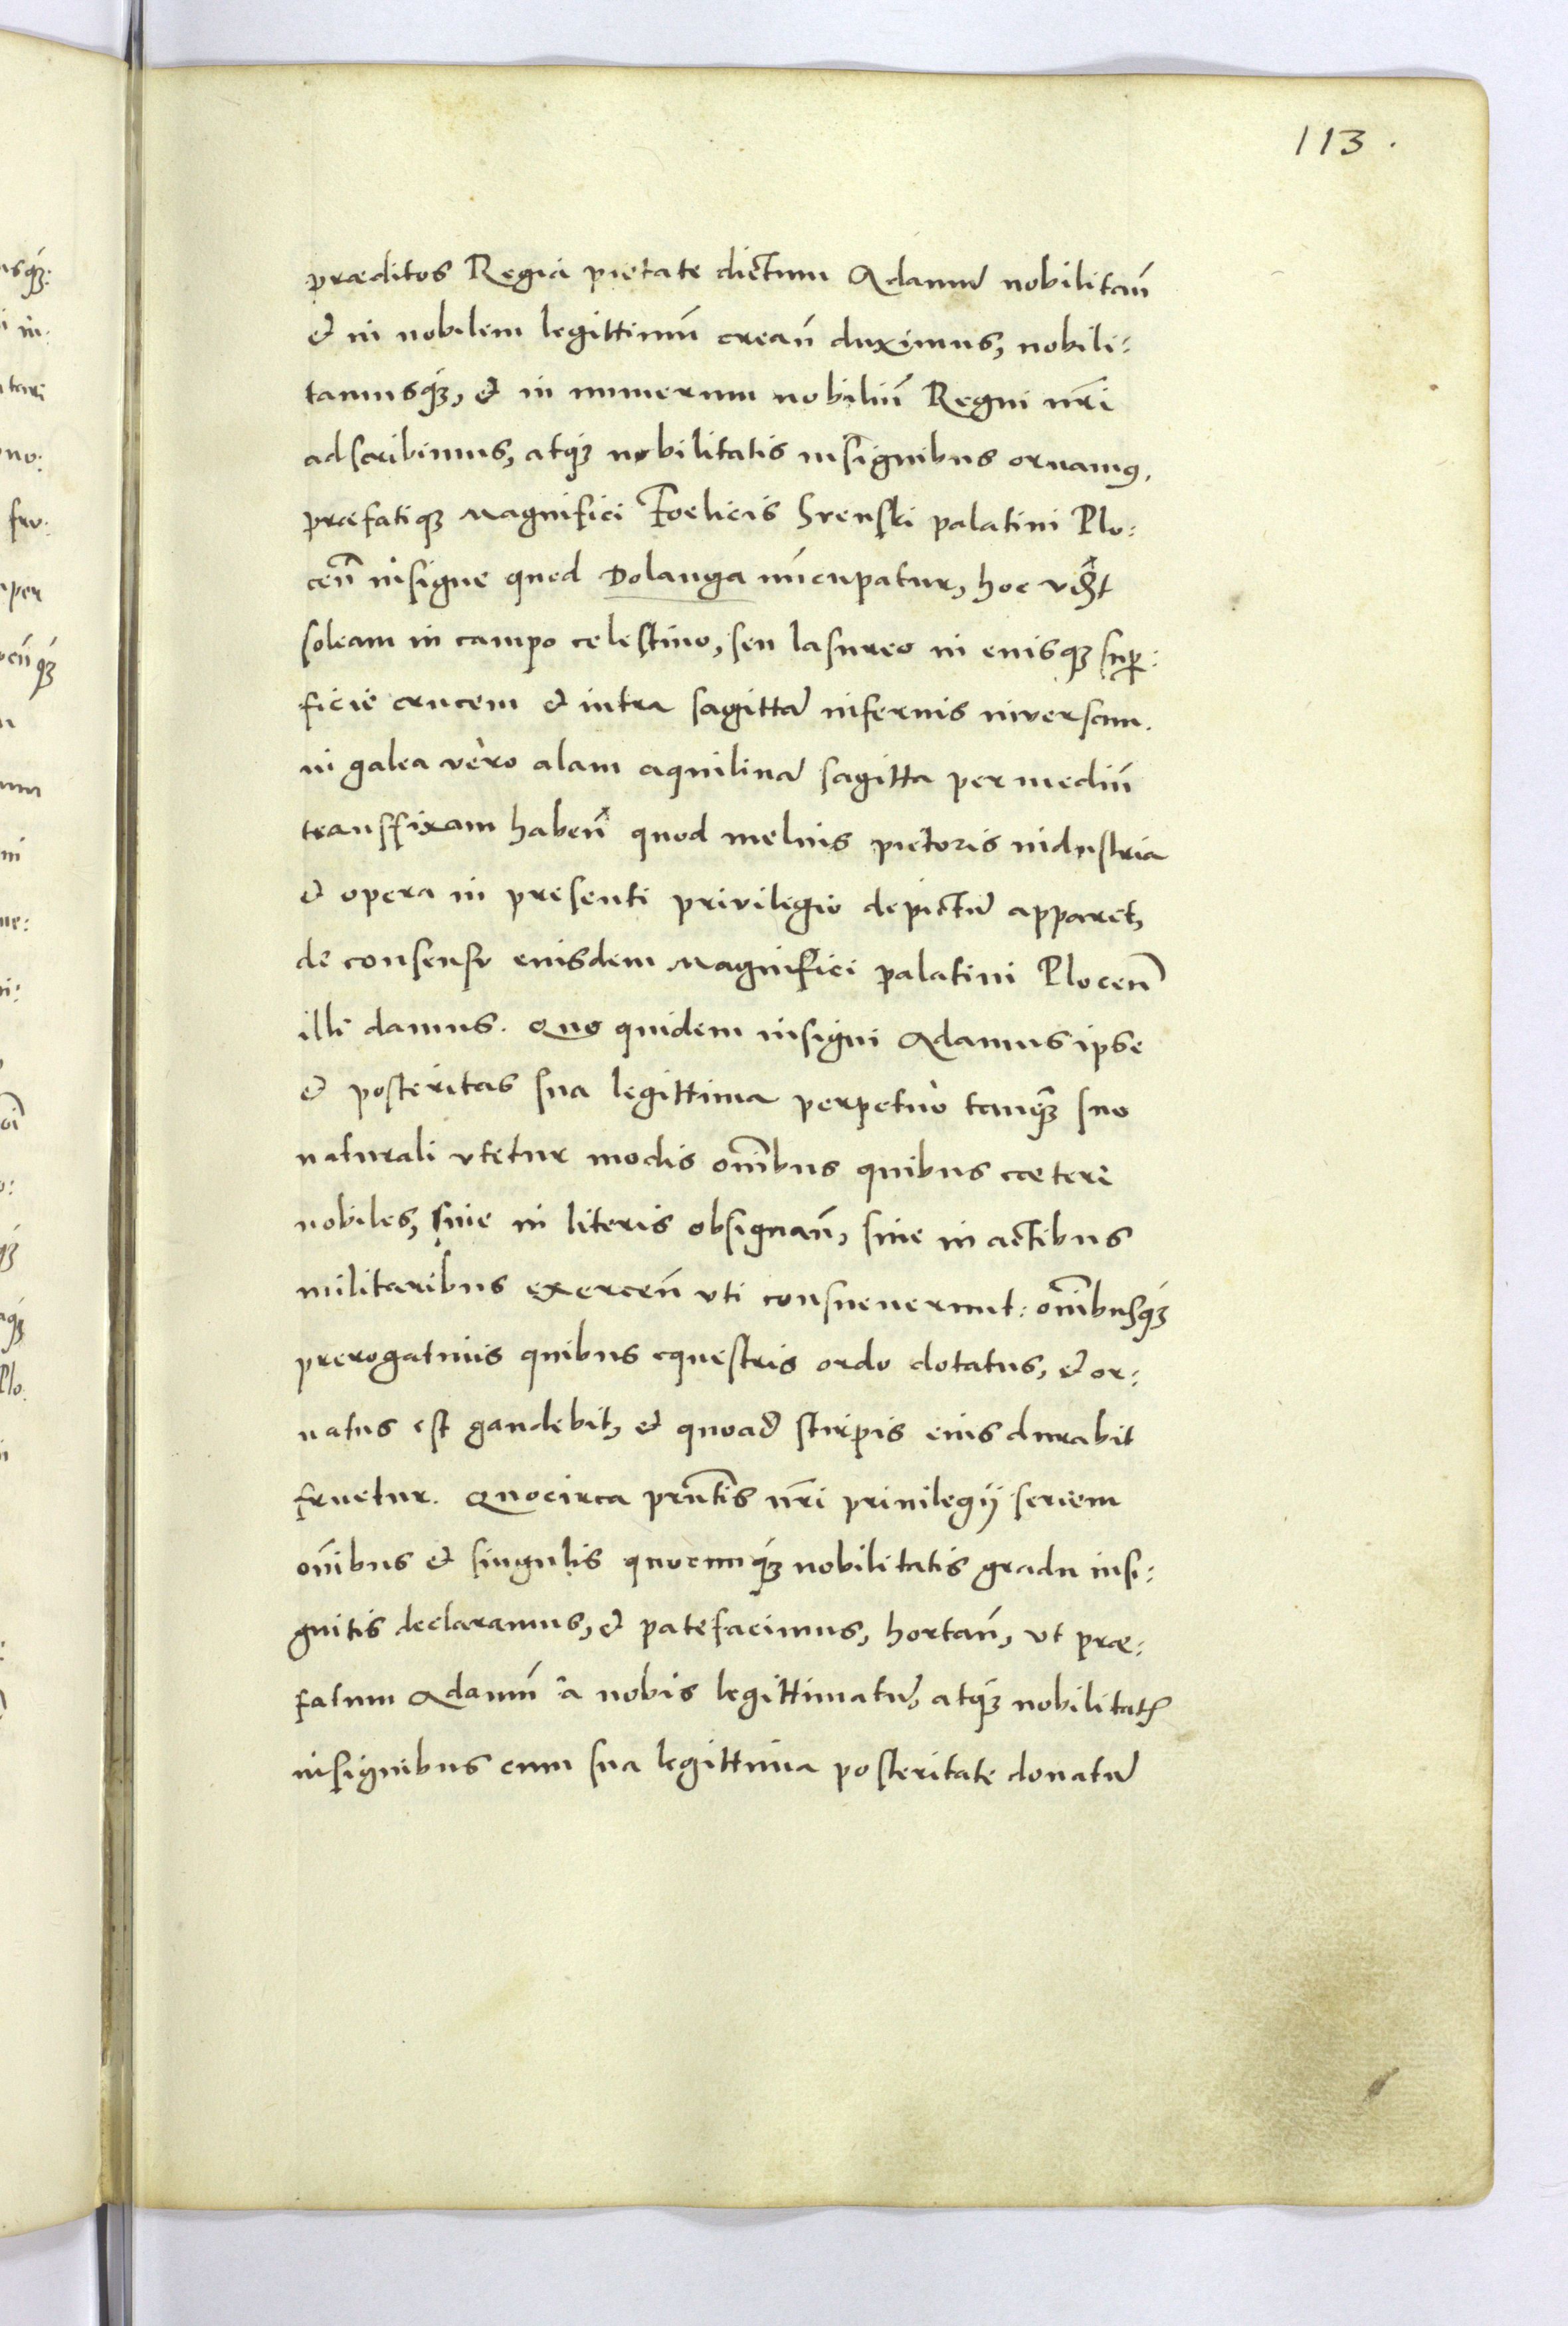 113.
præditos Regia pietate dictum Adamū nobilitan̄
et in nobilem legittimū crean̄ duximus, nobili:
tamusqȝ, et in numerum nobiliū Regni nr̄i
adscribimus, atqȝ nobilitatis insignibus ornamꝯ.
præfatiqȝ Magnifici Foelicis Srenski palatini Plo:
cen̄ insigne quod Dolanga nūcupatur, hoc vꝫt
soleam in campo celestino, seu lasureo in eiusqȝ suꝑ:
ficie crucem et intra sagittā infernis inversam.
in galea vero alam aquilinā sagitta per mediū
transfixam haben̄ quod melius pictoris industria
et opera in presenti privilegio depictū apparet,
de consensu eiusdem Magnifici palatini Plocen̄
illi damus. Quo quidem insigni Adamus ipse
et posteritas sua legittima perpetuo tanqȝ suo
naturali vtetur modis om̄ibus quibus cæteri
nobiles, siue in literis obsignan̄, siue in actibus
militaribus exercen̄ vti consueuerunt: om̄ibusqȝ
prerogatiuis quibus equestris ordo dotatus, et or:
natus est gaudebit, et quoad stirpis eius durabit
fruetur. Quocirca pn̄tis nr̄i priuilegij seriem
om̄ibus et singulis quocunqȝ nobilitatis gradu insi:
gnitis declaramus, et patefacimus, hortan̄, vt præ:
fatum Adamū a nobis legittimatū, atqȝ nobilitatꝭ
insignibus cum sua legittima posteritate donatū